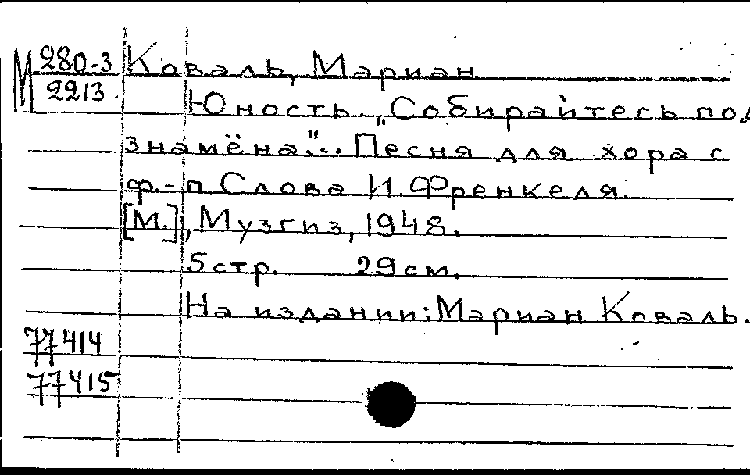 М 280-3 Коваль, Мариан
2213 Юность. „Собирайтесь под
знамёна"... Песня для хора с
ф.-п Слова И. Френкеля.
[М.], Музгиз, 1948.
5 стр. 29 см.
На издании: Мариан Коваль.
77414
77415